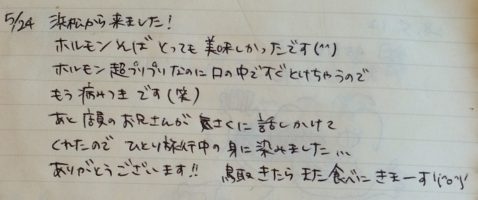 5/24 浜松から来ました!
ホルモンそば とっても 美味しかったです(^^)
ホルモン超プリプリなのに口の中ですぐとけちゃうので
もう病みつきです(笑)
あと店員のお兄さんが気さくに話しかけて
くれたので ひとり旅行中の身に染みました…
ありがとうございます!! 鳥取きたら また食べに きまーす!(^o^)!